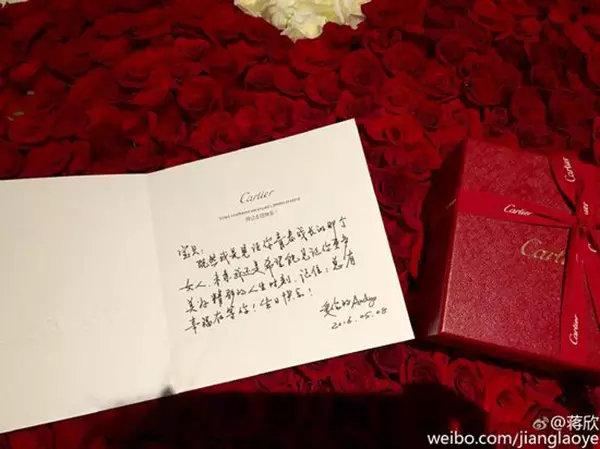 Cartier
宝贝:
既然我是见证你青春成长的那个
女人,未来我还是希望能见证你更多
美好精彩的人生时刻,记住:总有
幸福在等你!生日快乐!
爱你的
2016.05.08
Cartier
Cartier
Cartier
@蒋欣
weibo.com/jianglaoye